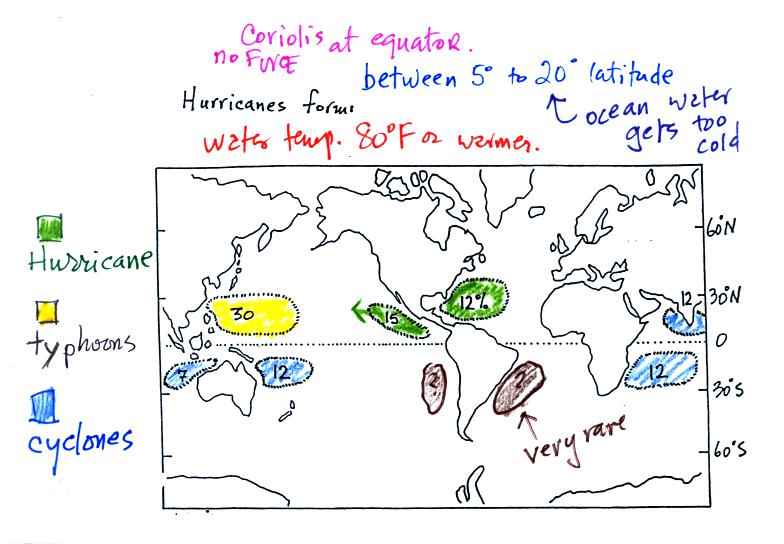 Coriolis at equator.
no FORCE
between 5° to 20° latitude
Hurricanes form:
ocean water
gets too
cold
water temp. 80°F or warmer.
60°N
Hurricane
12
30°N
30
15
12%
typhoons
0
7
12
?
?
12
30°S
cyclones
very rare
60°S